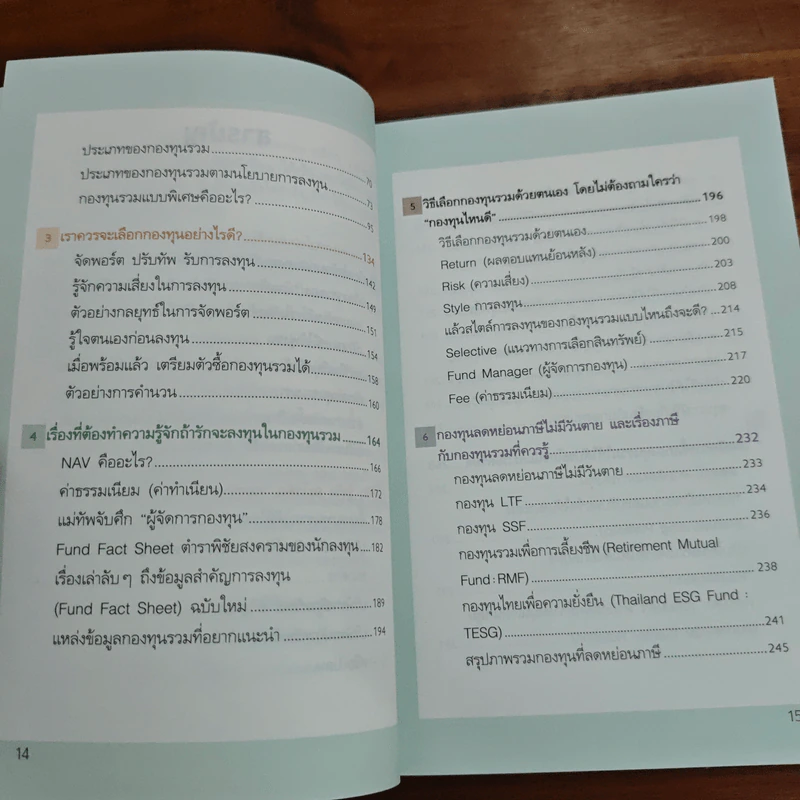 ประเภทของกองทุนรวม
ประเภทของกองทุนรวมตามนโยบายการลงทุน 70
กองทุนรวมแบบพิเศษคืออะไร? 73
95
3 เราควรจะเลือกกองทุนอย่างไรดี? 134
จัดพอร์ต ปรับทัพ รับการลงทุน 142
รู้จักความเสี่ยงในการลงทุน 149
ตัวอย่างกลยุทธ์ในการจัดพอร์ต 151
รู้ใจตนเองก่อนลงทุน 154
เมื่อพร้อมแล้ว เตรียมตัวซื้อกองทุนรวมได้ 158
ตัวอย่างการคำนวน 160
4 เรื่องที่ต้องทำความรู้จักถ้ารักจะลงทุนในกองทุนรวม 164
NAV คืออะไร? 166
ค่าธรรมเนียม (ค่าทำเนียน) 172
แม่ทัพจับศึก “ผู้จัดการกองทุน” 178
Fund Fact Sheet ตำราพิชัยสงครามของนักลงทุน 182
เรื่องเล่าลับๆ ถึงข้อมูลสำคัญการลงทุน
(Fund Fact Sheet) ฉบับใหม่ 189
แหล่งข้อมูลกองทุนรวมที่อยากแนะนำ 194
14
5 วิธีเลือกกองทุนรวมด้วยตนเอง โดยไม่ต้องถามใครว่า
“กองทุนไหนดี” 196
วิธีเลือกกองทุนรวมด้วยตนเอง 198
Return (ผลตอบแทนย้อนหลัง) 200
Risk (ความเสี่ยง) 203
Style การลงทุน 208
แล้วสไตล์การลงทุนของกองทุนรวมแบบไหนถึงจะดี? ...214
Selective (แนวทางการเลือกสินทรัพย์) 215
Fund Manager (ผู้จัดการกองทุน) 217
Fee (ค่าธรรมเนียม) 220
6 กองทุนลดหย่อนภาษีไม่มีวันตาย และเรื่องภาษี
กับกองทุนรวมที่ควรรู้ 232
กองทุนลดหย่อนภาษีไม่มีวันตาย 233
กองทุน LTF 234
กองทุน SSF 236
กองทุนรวมเพื่อการเลี้ยงชีพ (Retirement Mutual
Fund : RMF) 238
กองทุนไทยเพื่อความยั่งยืน (Thailand ESG Fund :
TESG) 241
สรุปภาพรวมกองทุนที่ลดหย่อนภาษี 245
15